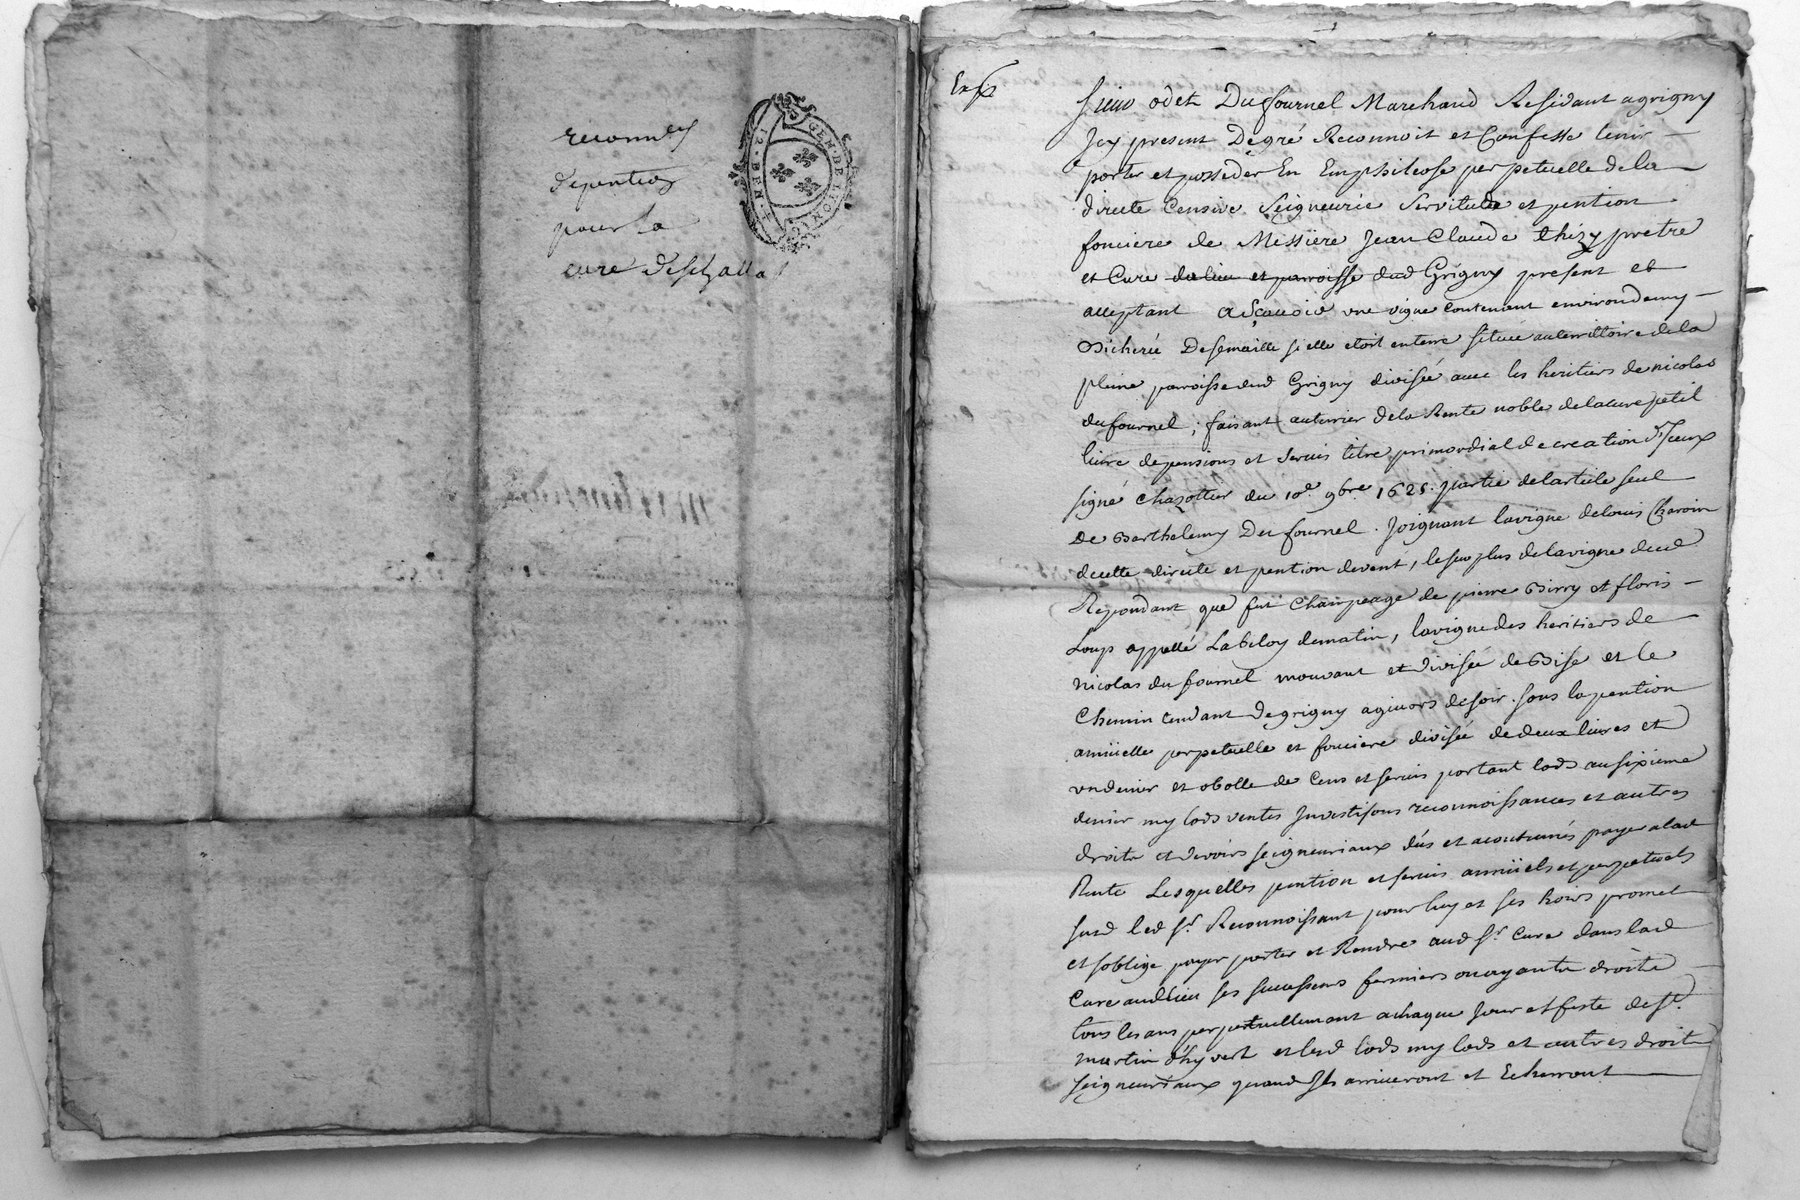 pour la
cure
GEN · DE LYON
Exp
odet Dufournel Marchand Residant agrigny
Jcy present Degré Reconnoit et Confesse tenir
porter et posseder En Emphiteose perpetuelle de la
directe Censive Seigneurie Servitude et pention
fonciere de Messiere Jean Claude thizy pretre
et Cure du lieu et parroisse dud Grigny present et
acceptant a Scavoir une vigne contenant environ demy
Bicherée De semaille si elle etoit en terre située au territtoire de la
pleine parroisse dud Grigny divisée avec les heritiers de nicolas
dufournel ; faisant au terrier de la Rente noble de la cure petit
livre de pensions et servis titre primordial de creation d'Iceux
signé chazottier du 10e. 9bre 1625. partie de larticle seul
De Barthelemy Du fournel . Joignant la vigne de louis Charvin
de cette directe et pention de vent, le surplus de la vigne dud
Répondant que fut Champeage de pierre Birry et floris
Loup appellé de matin, la vigne des heritiers de
nicolas du fournel mouvant et divisée de Bise et le
Chemin tendant de grigny a givors de soir . sous la pention
annüelle perpetuelle et fonciere divisée de deux livres et
un denier et obolle de Cens et servis portant lods au sixieme
denier my lods ventes Investisons reconnoissances et autres
droits et devoirs seigneuriaux dûs et acoutumés payer a lad
Rente Lesquelles pention et servis annüels et perpetuels
susd led sr. Reconnoissant pour luy et ses hoirs promet
et soblige payer porter et Rendre aud sr. Cure dans lad
Cure aud lieu ses successeurs fermiers ou ayants droits
tous les ans perpetuellemant a chaque Jour et feste de st.
martin d'hyvert et lesd lods my lods et autres droits
seigneuriaux quand Ils arriveront et Echerront